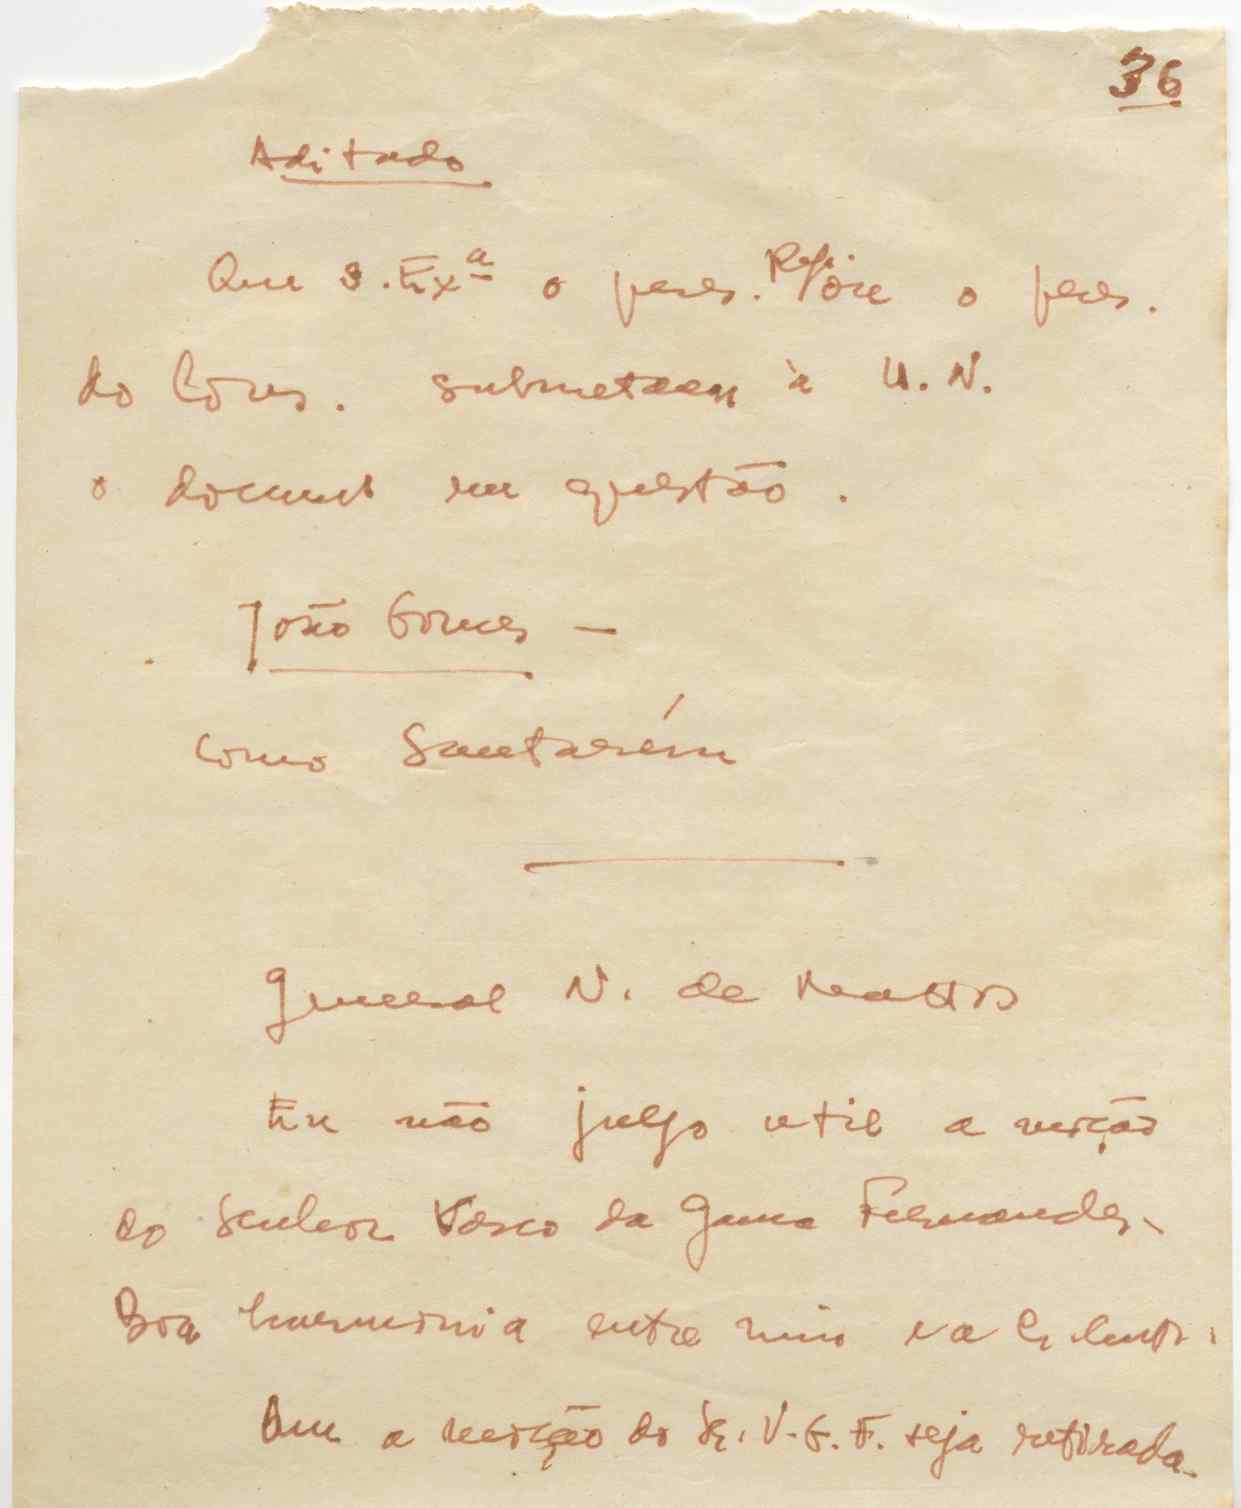 36
Aditado
Que S. Exª o pres. Rep. ou o pres.
do Cons. submetam à U. N.
o docum em questão.
João Gomes —
como Santarém
General N. de Mattos
Eu não julgo util a moção
do senhor Vasco da Gama Fernandes.
Boa harmonia entre
Que a moção do Sr. V. G. F. seja retirada.